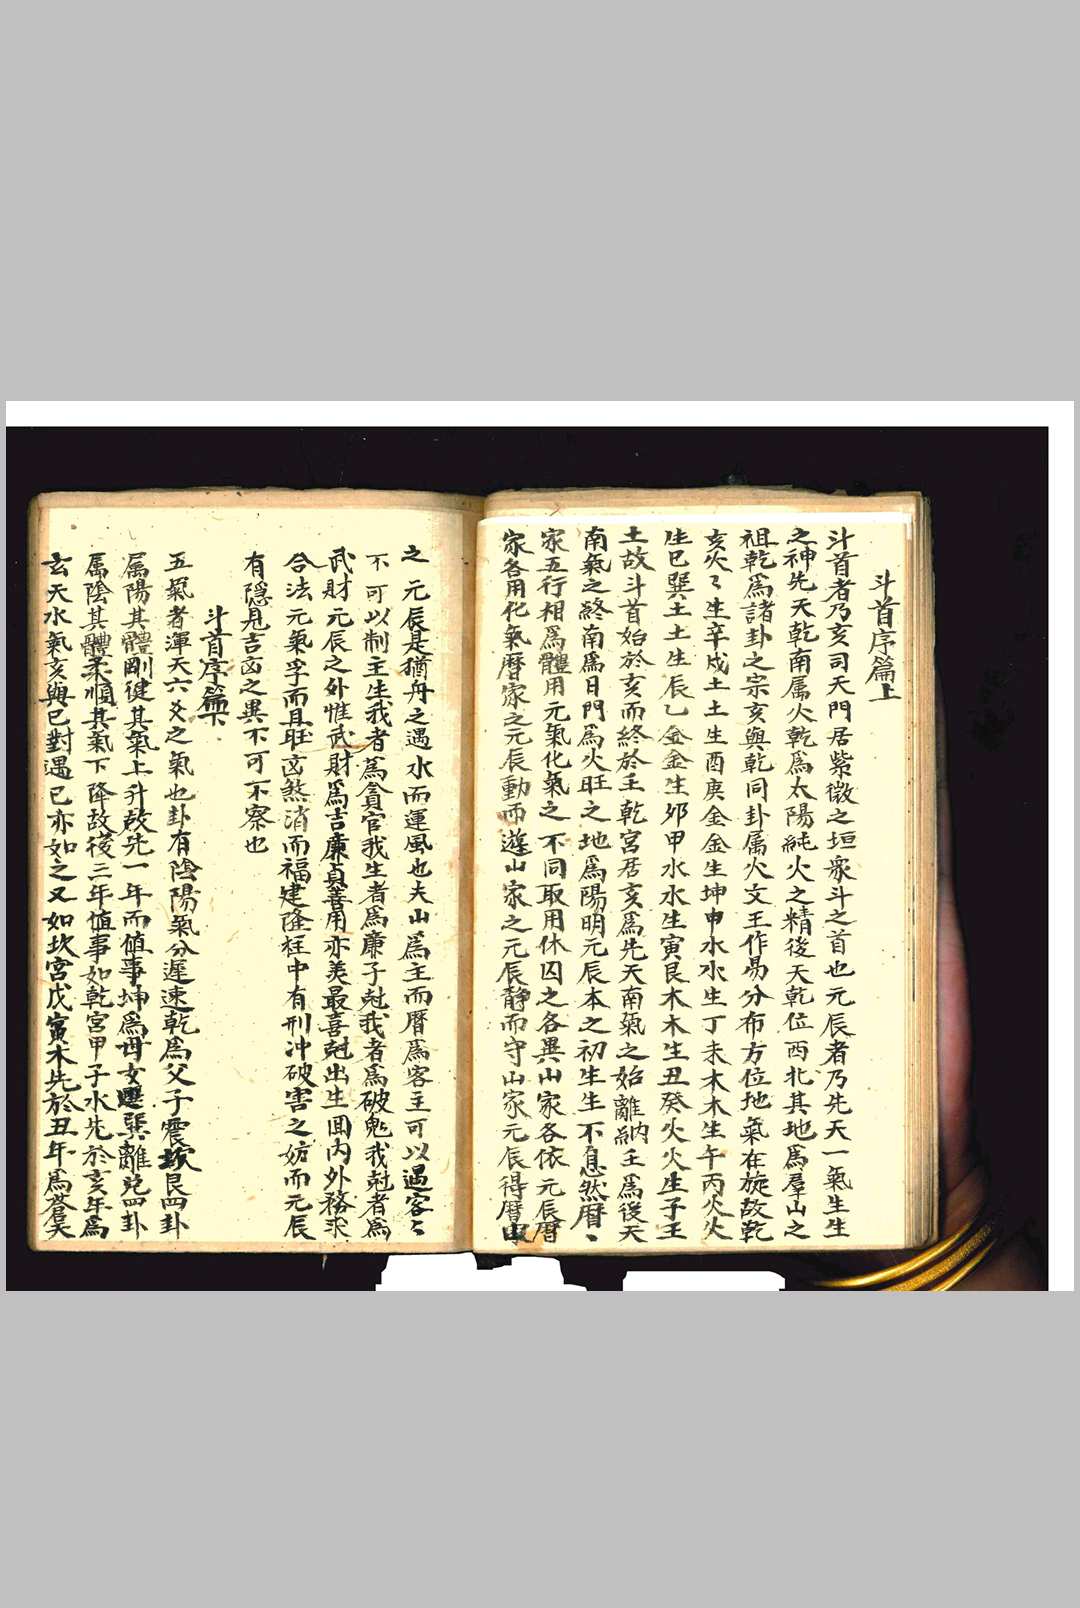 斗首序篇上
斗首者乃亥司天門居紫微之垣衆斗之首也元辰者乃先天一氣生生
之神先天乾南属火乾爲太陽純火之精後天乾位西北其地爲羣山之
祖乾爲諸卦之宗亥與乾同卦属火文王作易分布方位地氣在旋故乾
亥火〻生辛戍土土生酉庚金金生坤申水水生丁未木木生午丙火火
生巳巽土土生辰乙金金生夘甲水水生寅艮木木生丑癸火火生子壬
土故斗首始於亥而終於壬乾宮居亥爲先天南氣之始離納壬爲後天
南氣之終南爲日門爲火旺之地爲陽明元辰本之初生生不息然曆〻
家五行相爲體用元氣化氣之不同取用休囚之各異山家各依元辰曆
家各用化氣曆家之元辰動而遊山家之元辰静而守山家元辰得曆
之元辰是猶舟之遇水而運風也夫山爲主而曆爲客主可以遇客〻
不可以制主生我者爲貪官我生者爲廉子尅我者爲破鬼我尅者爲
武財元辰之外惟武財爲吉廉貞善用亦美最喜尅出生囬内外務求
合法元氣孚而且旺凶煞消而福建隆柱中有刑冲破害之妨而元辰
有隱見吉凶之異不可不察也
斗首序篇下
五氣者渾天六爻之氣也卦有陰陽氣分遲速乾爲父子震坎艮四卦
属陽其體剛健其氣上升故先一年而值事坤爲母女巽離兑四卦
属陰其體柔順其氣下降故後三年值事如乾宮甲子水先於亥年爲
玄天水氣亥與巳對遇巳亦如之又如坎宮戊寅木先於丑年爲蒼天